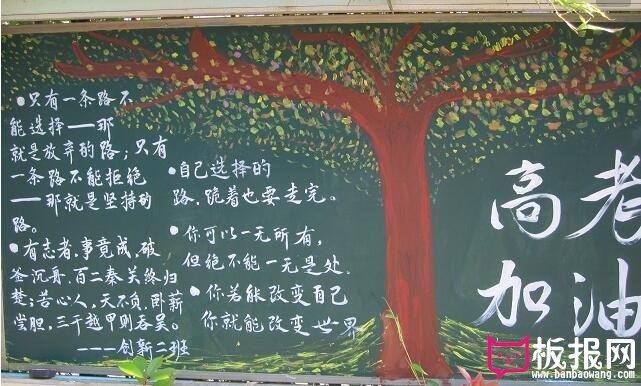 •只有一条路不
能选择——那
就是放弃的路；只有
一条路不能拒绝
——那就是坚持的
路。
•有志者，事竟成，破
釜沉舟，百二秦关终归
楚；苦心人，天不负，卧薪
尝胆，三千越甲则吞吴。
——创新二班
•自己选择的
路，跪着也要走完。
•你可以一无所有，
但绝不能一无是处.
•你若能改变自己
你就能改变世界
高考
加油
板报网
www.banbaowang.com